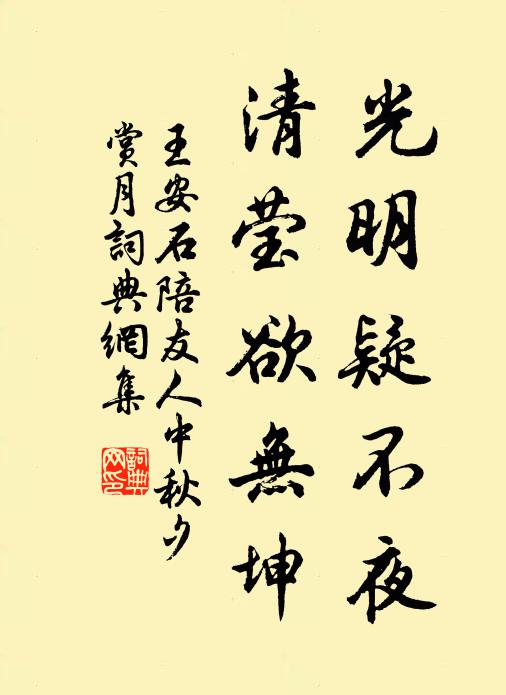 光明疑不夜
清莹欲無坤
王安石陪友人中秋夕
賞月詞典網集
詞典
网印